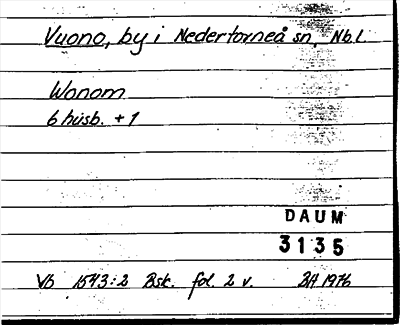 Vuono, by i Nedertorneå sn, Nb.l.
Wonom
6 husb. + 1
DAUM
3135
Vb 1543:2 Bsk. fol. 2 v. BH 1976